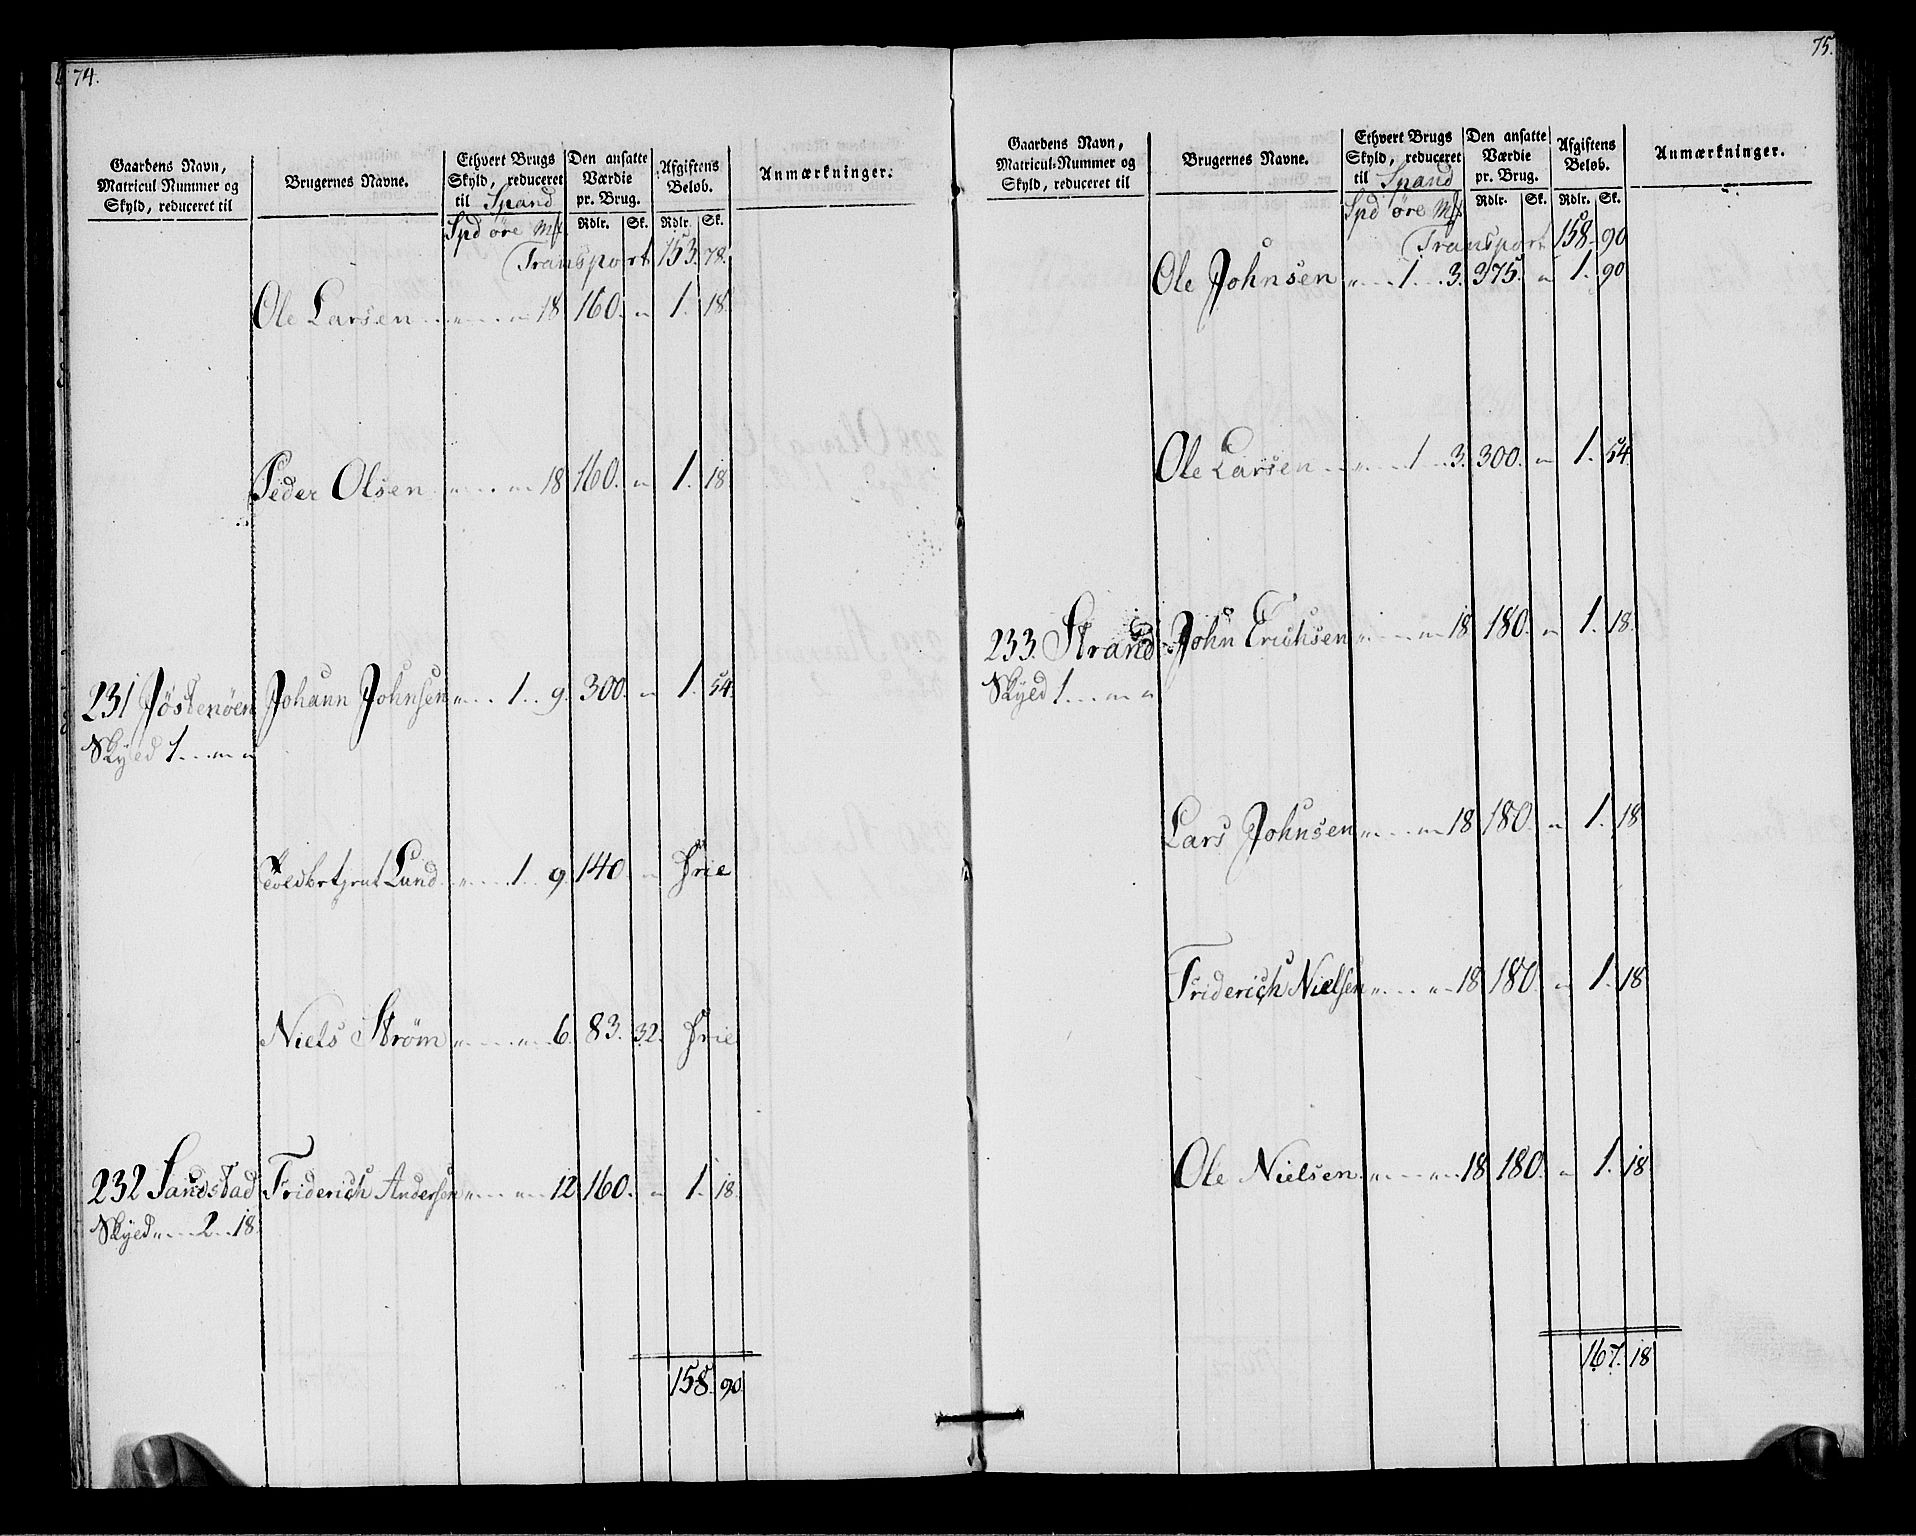 74.
Gaardens Navn, Matricul Nummer og Skyld, reduceret til
Brugernes Navne.
Ethvert Brugs Skyld, reduceret til Spand
Den ansatte Værdie pr. Brug.
Afgiftens Beløb.
Anmærkninger.
Spd öre Mk Rdlr. Sk. Rdlr. Sk.
Transport 153. 78.
Ole Larsen 18 160. " 1. 18.
Peder Olsen 18 160. " 1. 18.
231 Jöstenöen Johann Johnsen 1.. 9. 300. " 1. 54.
Skyld 1
Lund 1.. 9 140 " Frie
Niels Strøm 6. 83. 32. Frie
232 Sandstad Friderich Andersen 12 160. " 1. 18.
Skyld 2.. 18.
158. 90.
75.
Gaardens Navn, Matricul-Nummer og Skyld, reduceret til
Brugernes Navne.
Ethvert Brugs Skyld, reduceret til Spand
Den ansatte Værdie pr. Brug.
Afgiftens Beløb.
Anmærkninger.
Spd öre Mk Rdlr. Sk. Rdlr. Sk.
Transport 158. 90
Ole Johnsen 1.. 3. 375. " 1. 90
Ole Larsen 1.. 3. 300. " 1. 54.
233. Strand John Erichsen 18 180. " 1. 18.
Skyld 1
Lars Johnsen 18 180. " 1. 18
Friderich Nielsen 18 180. " 1. 18
Ole Nielsen 18 180. " 1. 18
167. 18